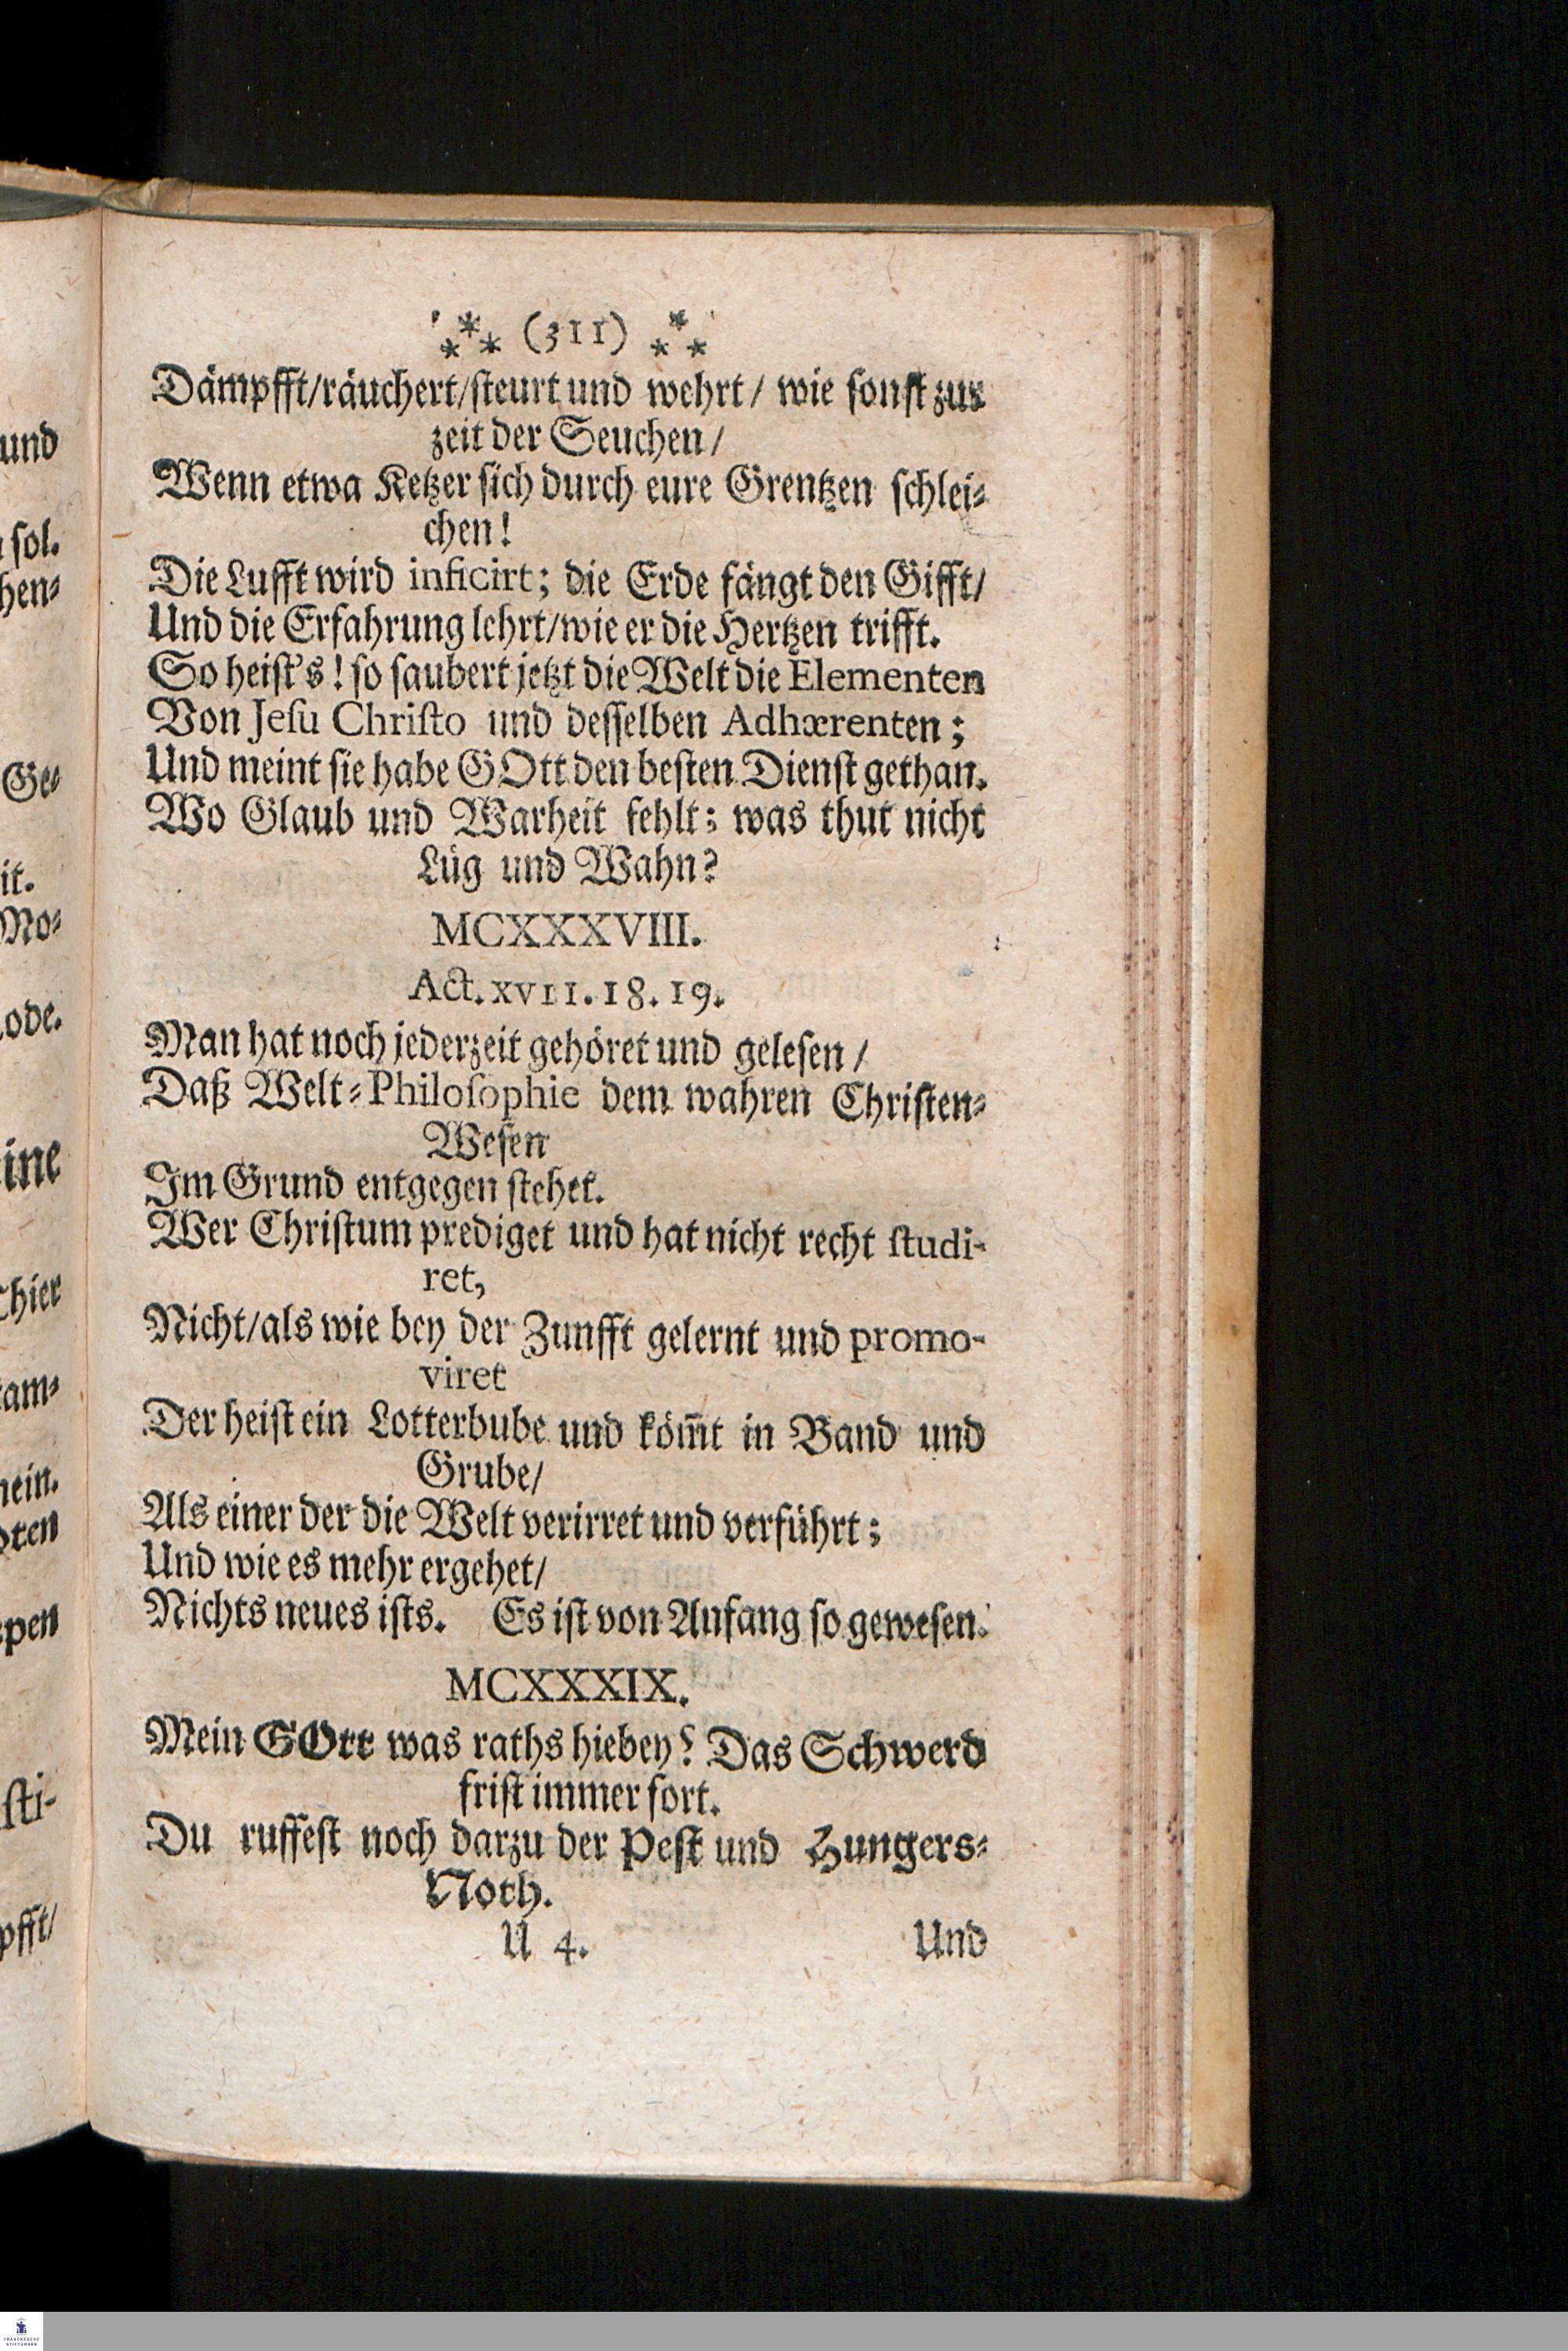 und
sol.
hen⸗
Ge⸗
it.
Mo⸗
ode.
ine
hier
am⸗
ein.
ten
pen
sti-
pfft/
⁂ (311) ⁂
Dämpfft/räuchert/steurt und wehrt/ wie sonst zur
zeit der Seuchen/
Wenn etwa Ketzer sich durch eure Grentzen schlei⸗
chen!
Die Lufft wird inficirt; die Erde fängt den Gifft/
Und die Erfahrung lehrt/wie er die Hertzen trifft.
So heist's! so saubert jetzt die Welt die Elementen
Von Jesu Christo und desselben Adhærenten;
Und meint sie habe GOtt den besten Dienst gethan.
Wo Glaub und Warheit fehlt; was thut nicht
Lüg und Wahn?
MCXXXVIII.
Act. XVII. 18. 19.
Man hat noch jederzeit gehöret und gelesen/
Daß Welt⸗Philosophie dem wahren Christen⸗
Wesen
Im Grund entgegen stehet.
Wer Christum prediget und hat nicht recht studi-
ret,
Nicht/als wie bey der Zunfft gelernt und promo-
viret
Der heist ein Lotterbube und köm̃t in Band und
Grube/
Als einer der die Welt verirret und verführt;
Und wie es mehr ergehet/
Nichts neues ists. Es ist von Anfang so gewesen.
MCXXXIX.
Mein GOtt was raths hiebey? Das Schwerd
frist immer fort.
Du ruffest noch darzu der Pest und Hungers⸗
Noth.
U 4.
Und
FRANCKESCHE
STIFTUNGEN